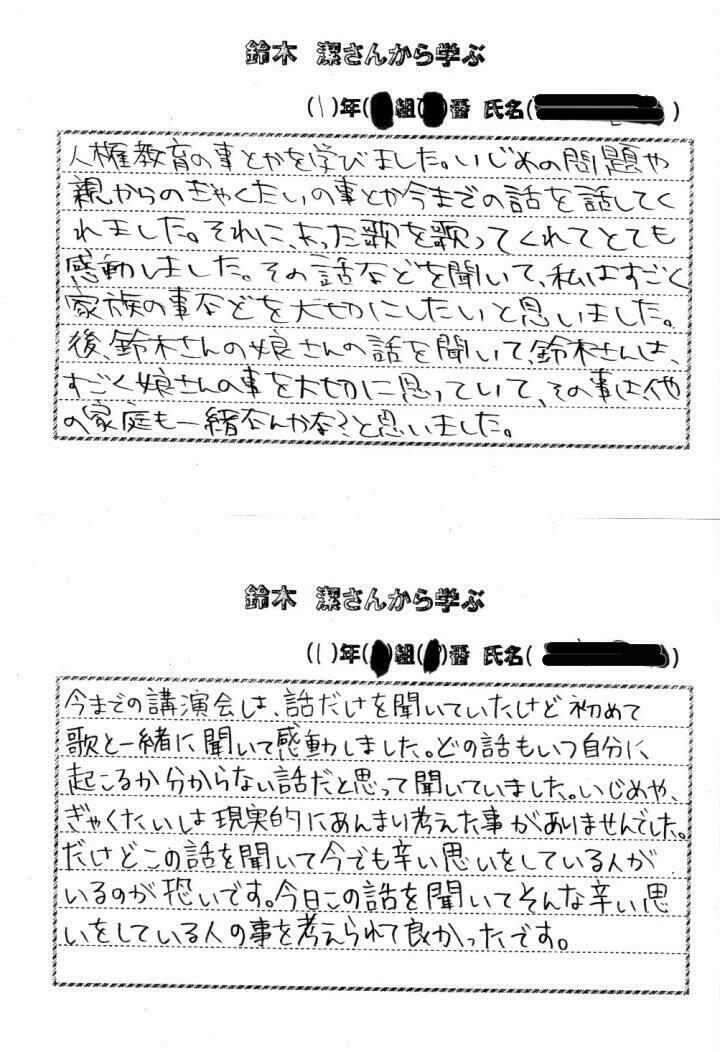 鈴木 潔さんから学ぶ
(1)年( )組( )番 氏名( )
人権教育の事とかを学びました。いじめの問題や
親からのぎゃくたいの事とか今までの話を話してく
れました。それに、あった歌を歌ってくれてとても
感動しました。その話などを聞いて、私はすごく
家族の事などを大切にしたいと思いました。
後、鈴木さんの娘さんの話を聞いて、鈴木さんは、
すごく娘さんの事を大切に思っていて、その事は、他
の家庭も一緒なんかな?と思いました。
鈴木 潔さんから学ぶ
(1)年( )組( )番 氏名( )
今までの講演会は、話だけを聞いていたけど初めて
歌と一緒に聞いて感動しました。どの話もいつ自分に
起こるか分からない話だと思って聞いていました。いじめや、
ぎゃくたいは現実的にあんまり考えた事がありませんでした。
だけどこの話を聞いて今でも辛い思いをしている人が
いるのが恐いです。今日この話を聞いてそんな辛い思
いをしている人の事を考えられて良かったです。